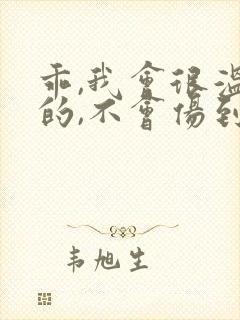 乖,我會很溫
的,不會傷到
韦旭生